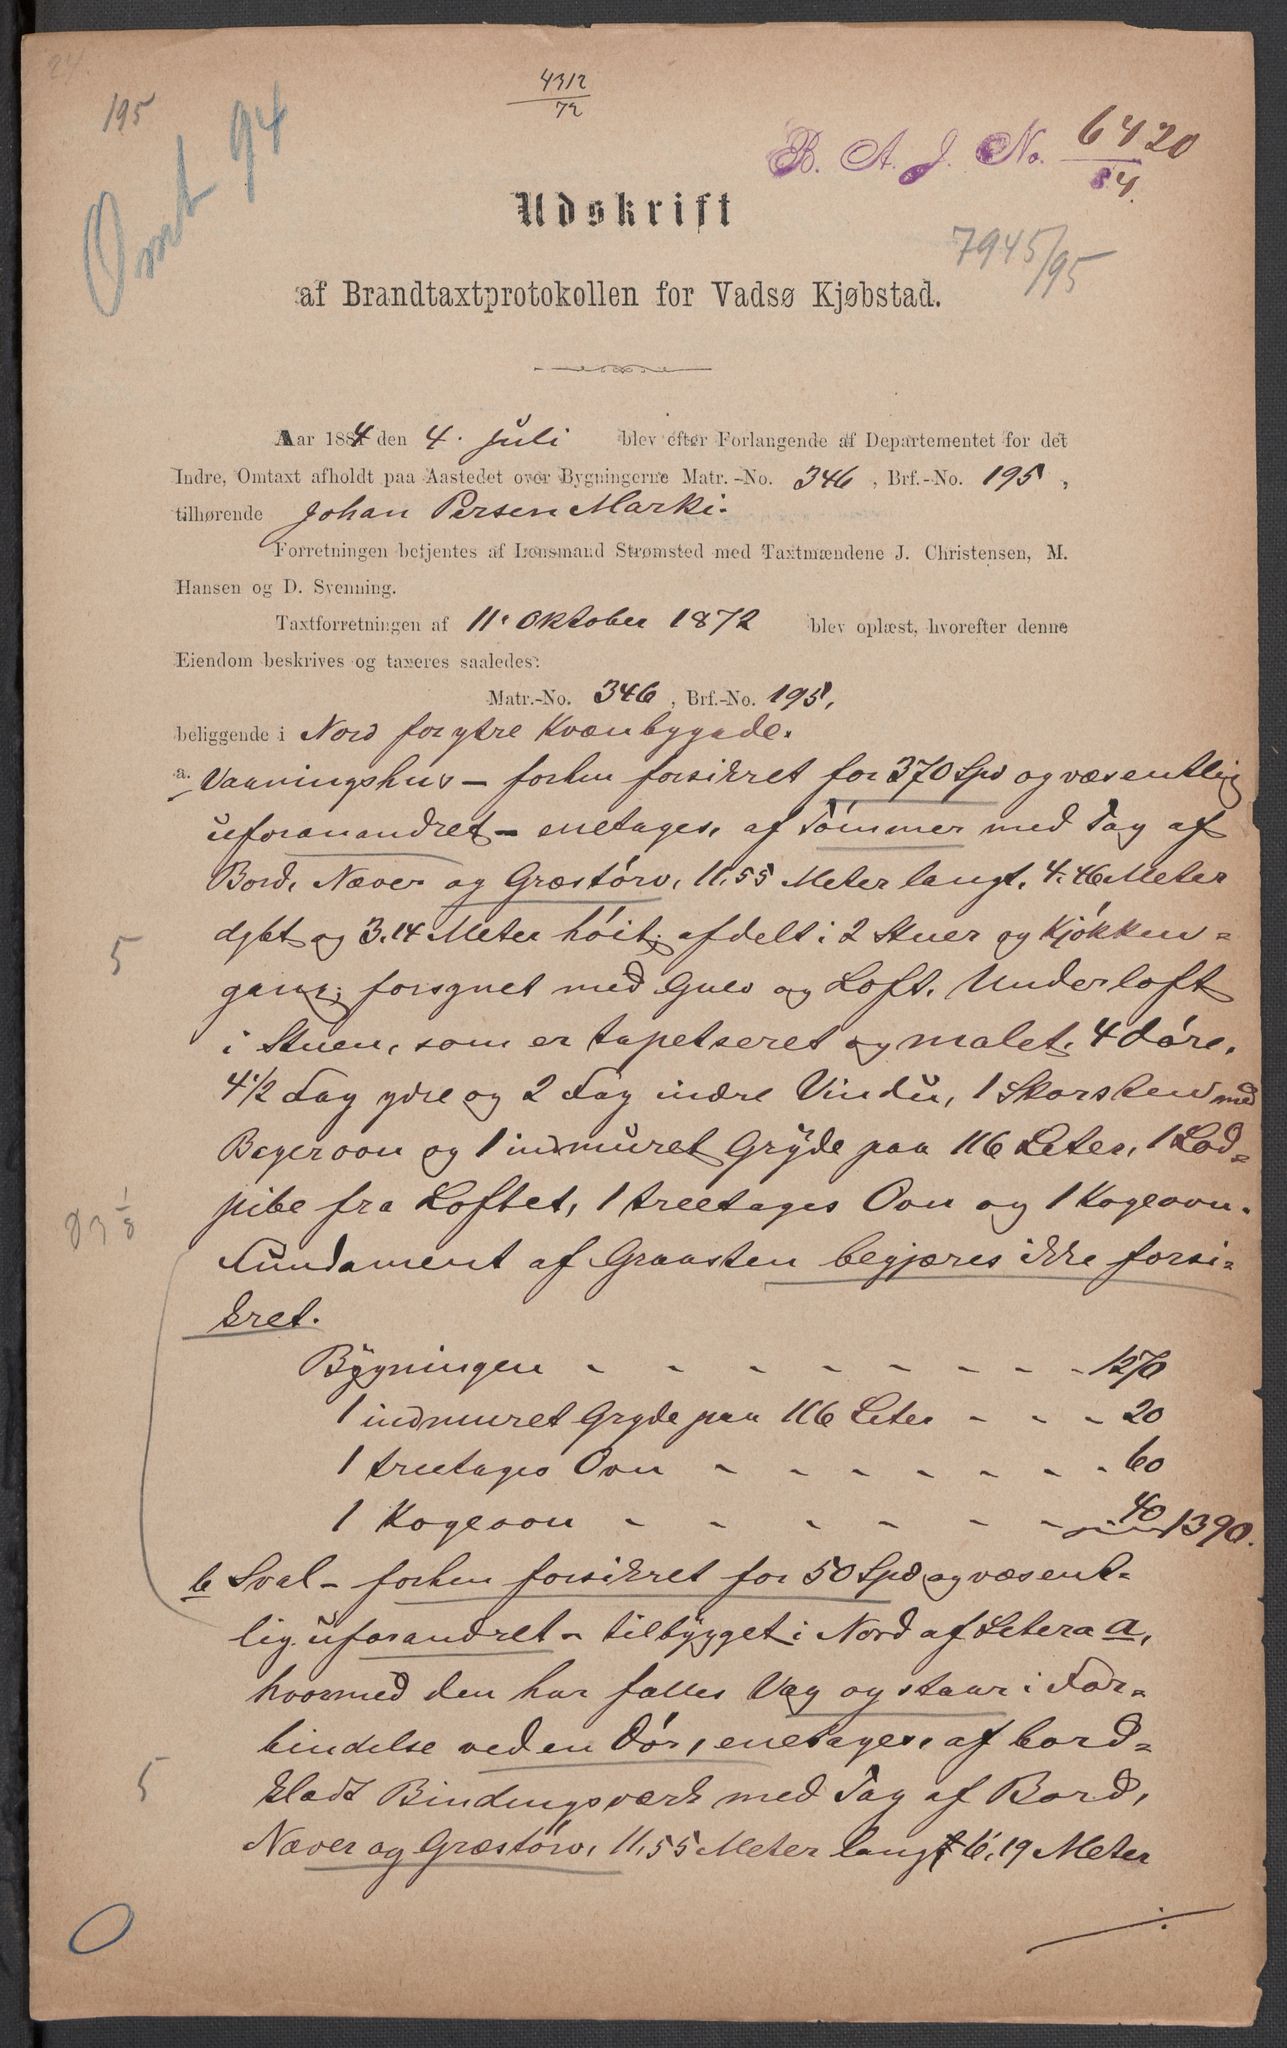 24.
195
4312
72
Omt 94
B. A. J. No. 6420
84.
Udskrift
7945/95
af Brandtaxtprotokollen for Vadsø Kjøbstad.
Aar 1884 den 4. juli blev efter Forlangende af Departementet for det
Indre, Omtaxt afholdt paa Aastedet over Bygningerne Matr.-No. 346, Brf.-No. 195,
tilhørende Johan Persen Marki.
Forretningen betjentes af Lensmand Strømsted med Taxtmændene J. Christensen, M.
Hansen og D. Svenning.
Taxtforretningen af 11. Oktober 1872 blev oplæst, hvorefter denne
Eiendom beskrives og taxeres saaledes:
Matr.-No. 346, Brf.-No. 195,
beliggende i Nord for ytre Kvænbygade.
a. Vaaningshus – forhen forsikret for 370 Spd og væsentlig
uforanandret – enetages, af Tømmer med Tag af
Bord, Næver og Græstørv, 11,55 Meter langt, 4,46 Meter
dybt og 3,14 Meter høit, afdelt i 2 Stuer og Kjøkken-
5
gang; forsynet med Gulv og Loft. Underloft
i Stuen, som er tapetseret og malet, 4 døre,
4 1/2 Fag ydre og 2 Fag indre Vindu, 1 Skorsten med
Bagerovn og 1 indmuret Gryde paa 116 Liter, 1 Lod-
pibe fra Loftet, 1 treetages Ovn og 1 Kogeovn.
83 1/8
Fundament af Graasten begjæres ikke forsi-
kret.
Bygningen - - - - - - - - 1270
1 indmuret Gryde paa 116 Liter - - - 20
1 treetages Ovn - - - - - - 60
1 Kogeovn - - - - - - - 40 1390.
b Sval – forhen forsikret for 50 Spd og væsent-
lig uforandret – tilbygget i Nord af Litera a,
hvormed den har fælles Væg og staar i For-
bindelse ved en Dør, enetages, af bord-
5
klædt Bindingsværk med Tag af Bord,
Næver og Græstørv, 11,55 Meter langt 6,19 Meter
./.
0